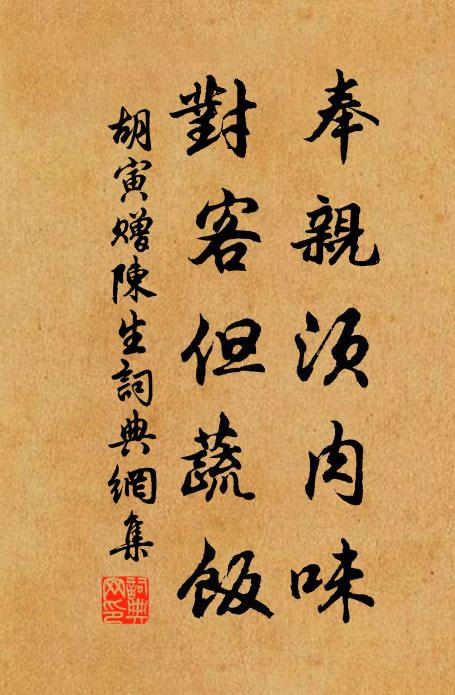 奉親須肉味
對客但蔬飯
胡寅贈陳生詞典網集
詞典網印